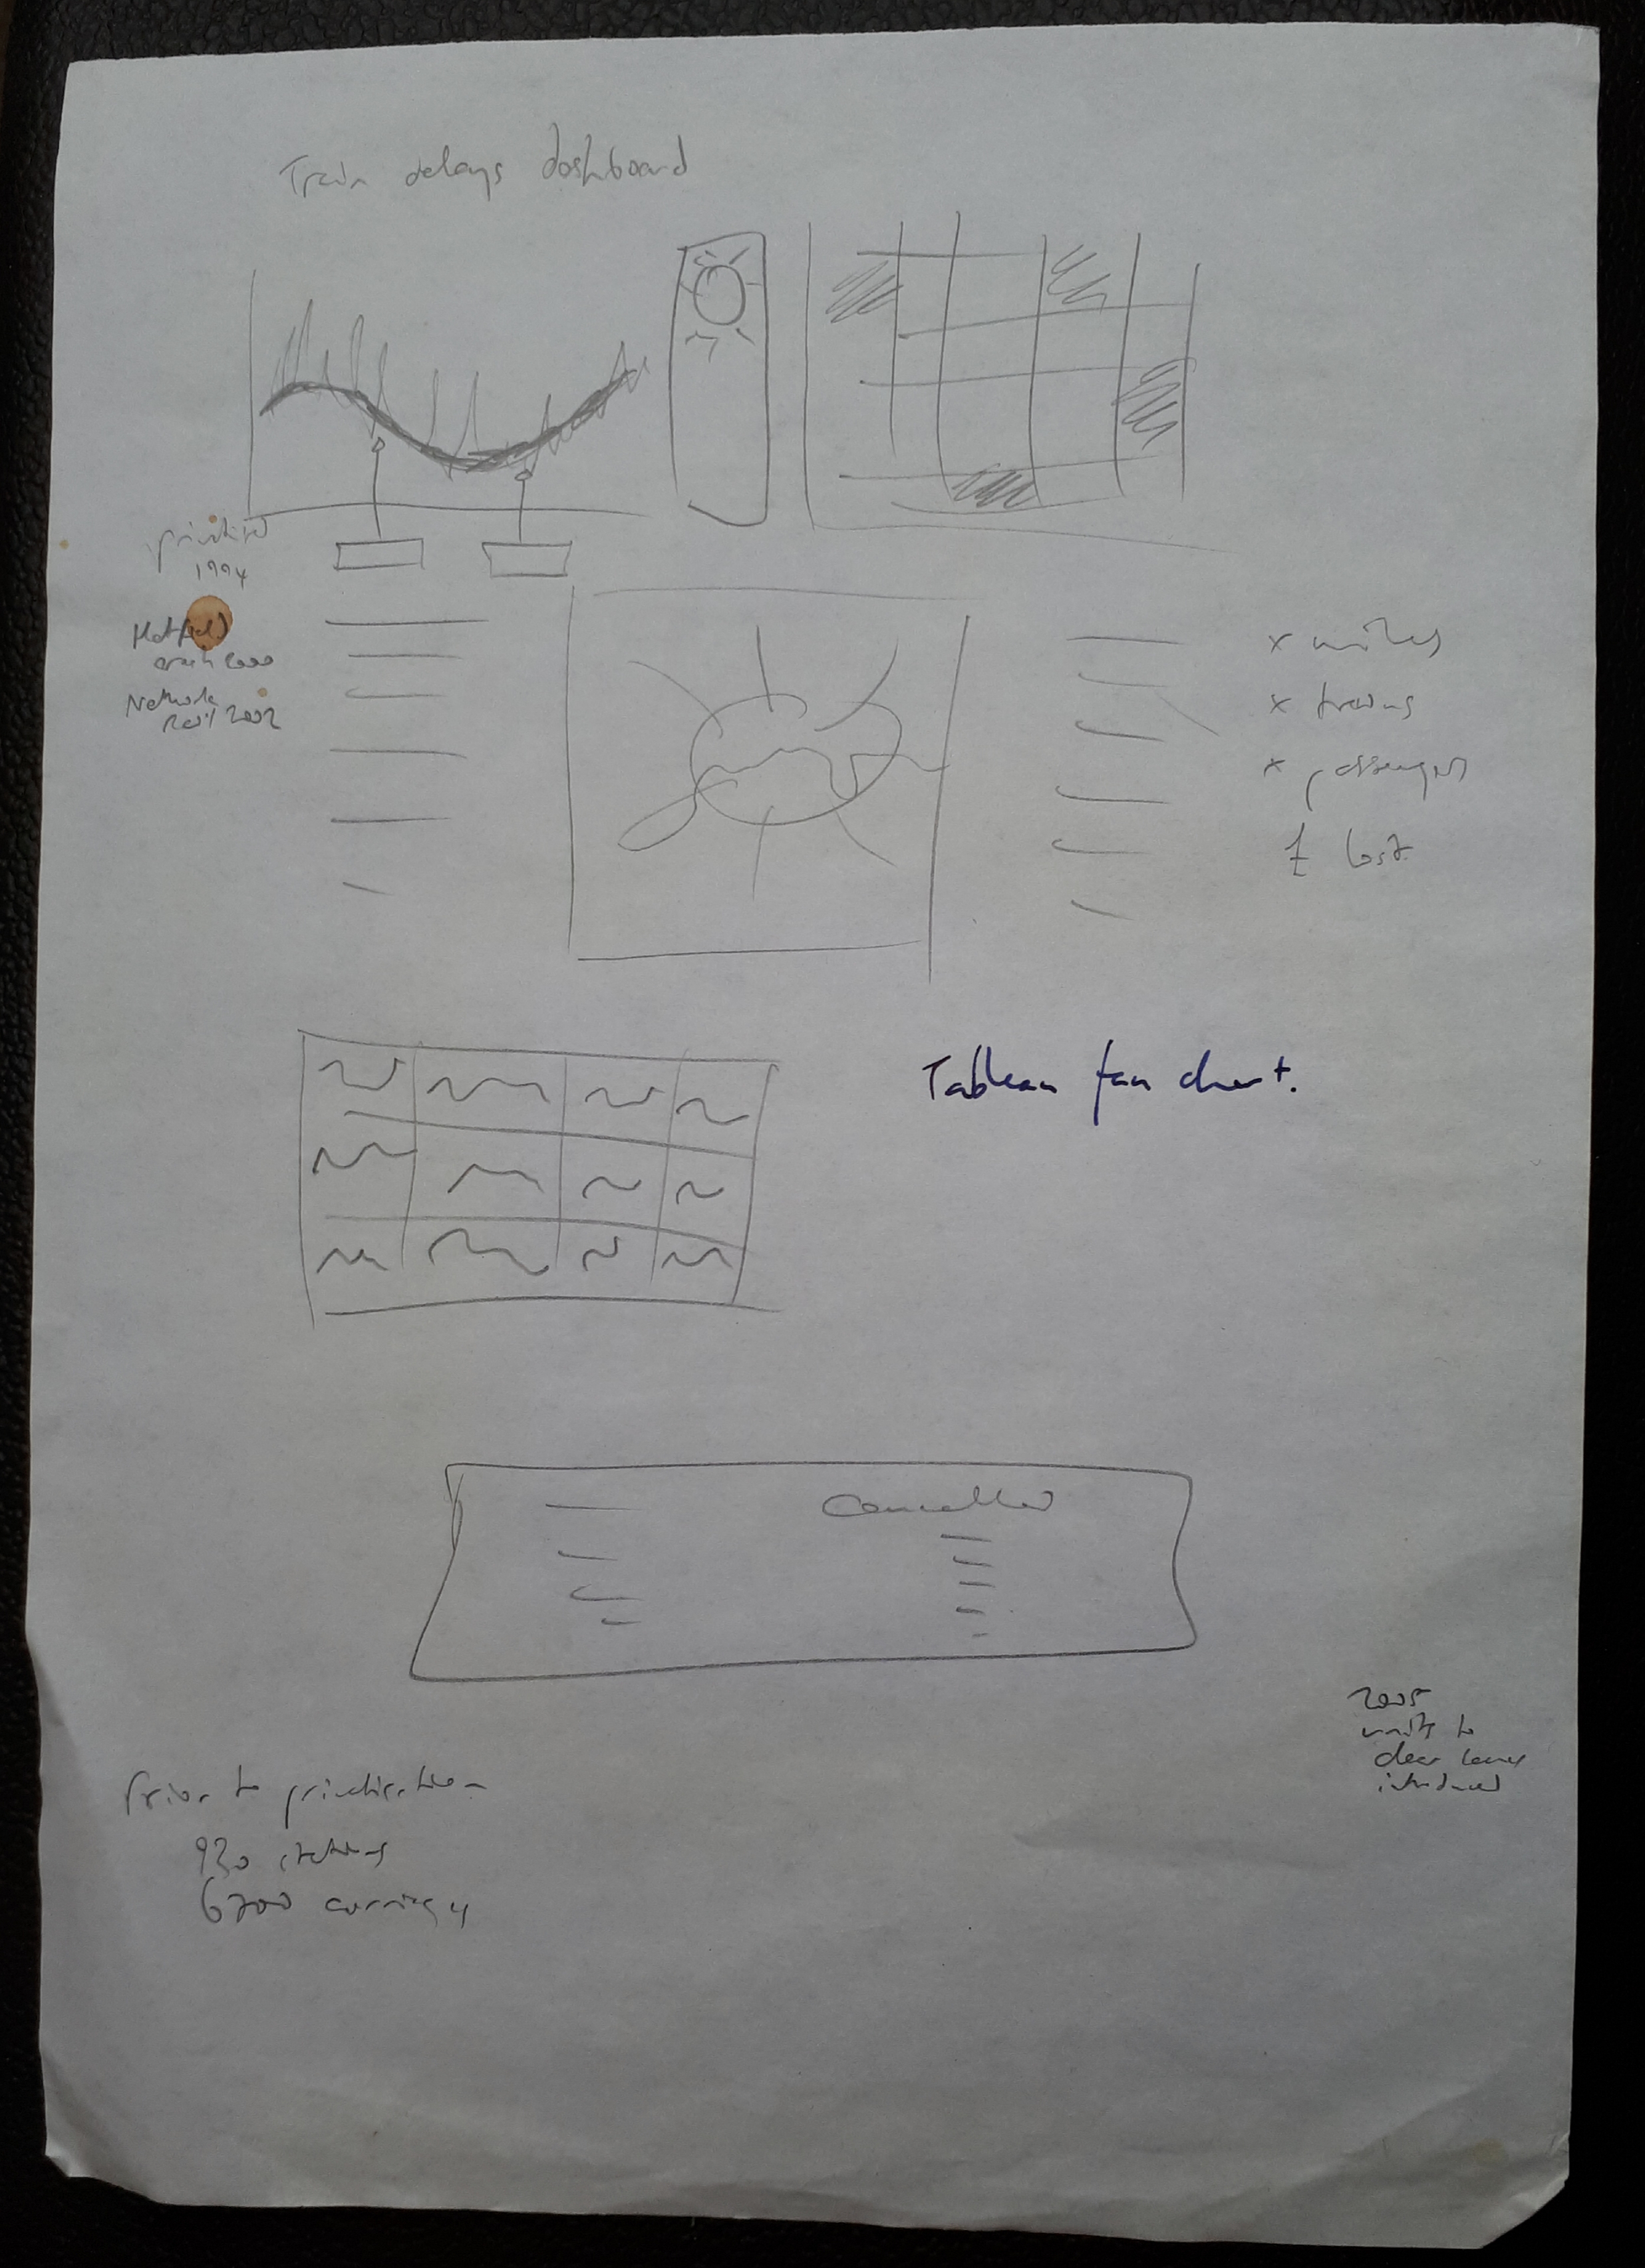 Train delays dashboard
privatised
1994
Hatfield
crash 2000
Network
Rail 2002
x miles
x trains
x passengers
£ lost
Tableau fan chart.
Cancelled
2005
to
clear leaves
introduced
Prior to privatisation
930 stations
6700 carriages